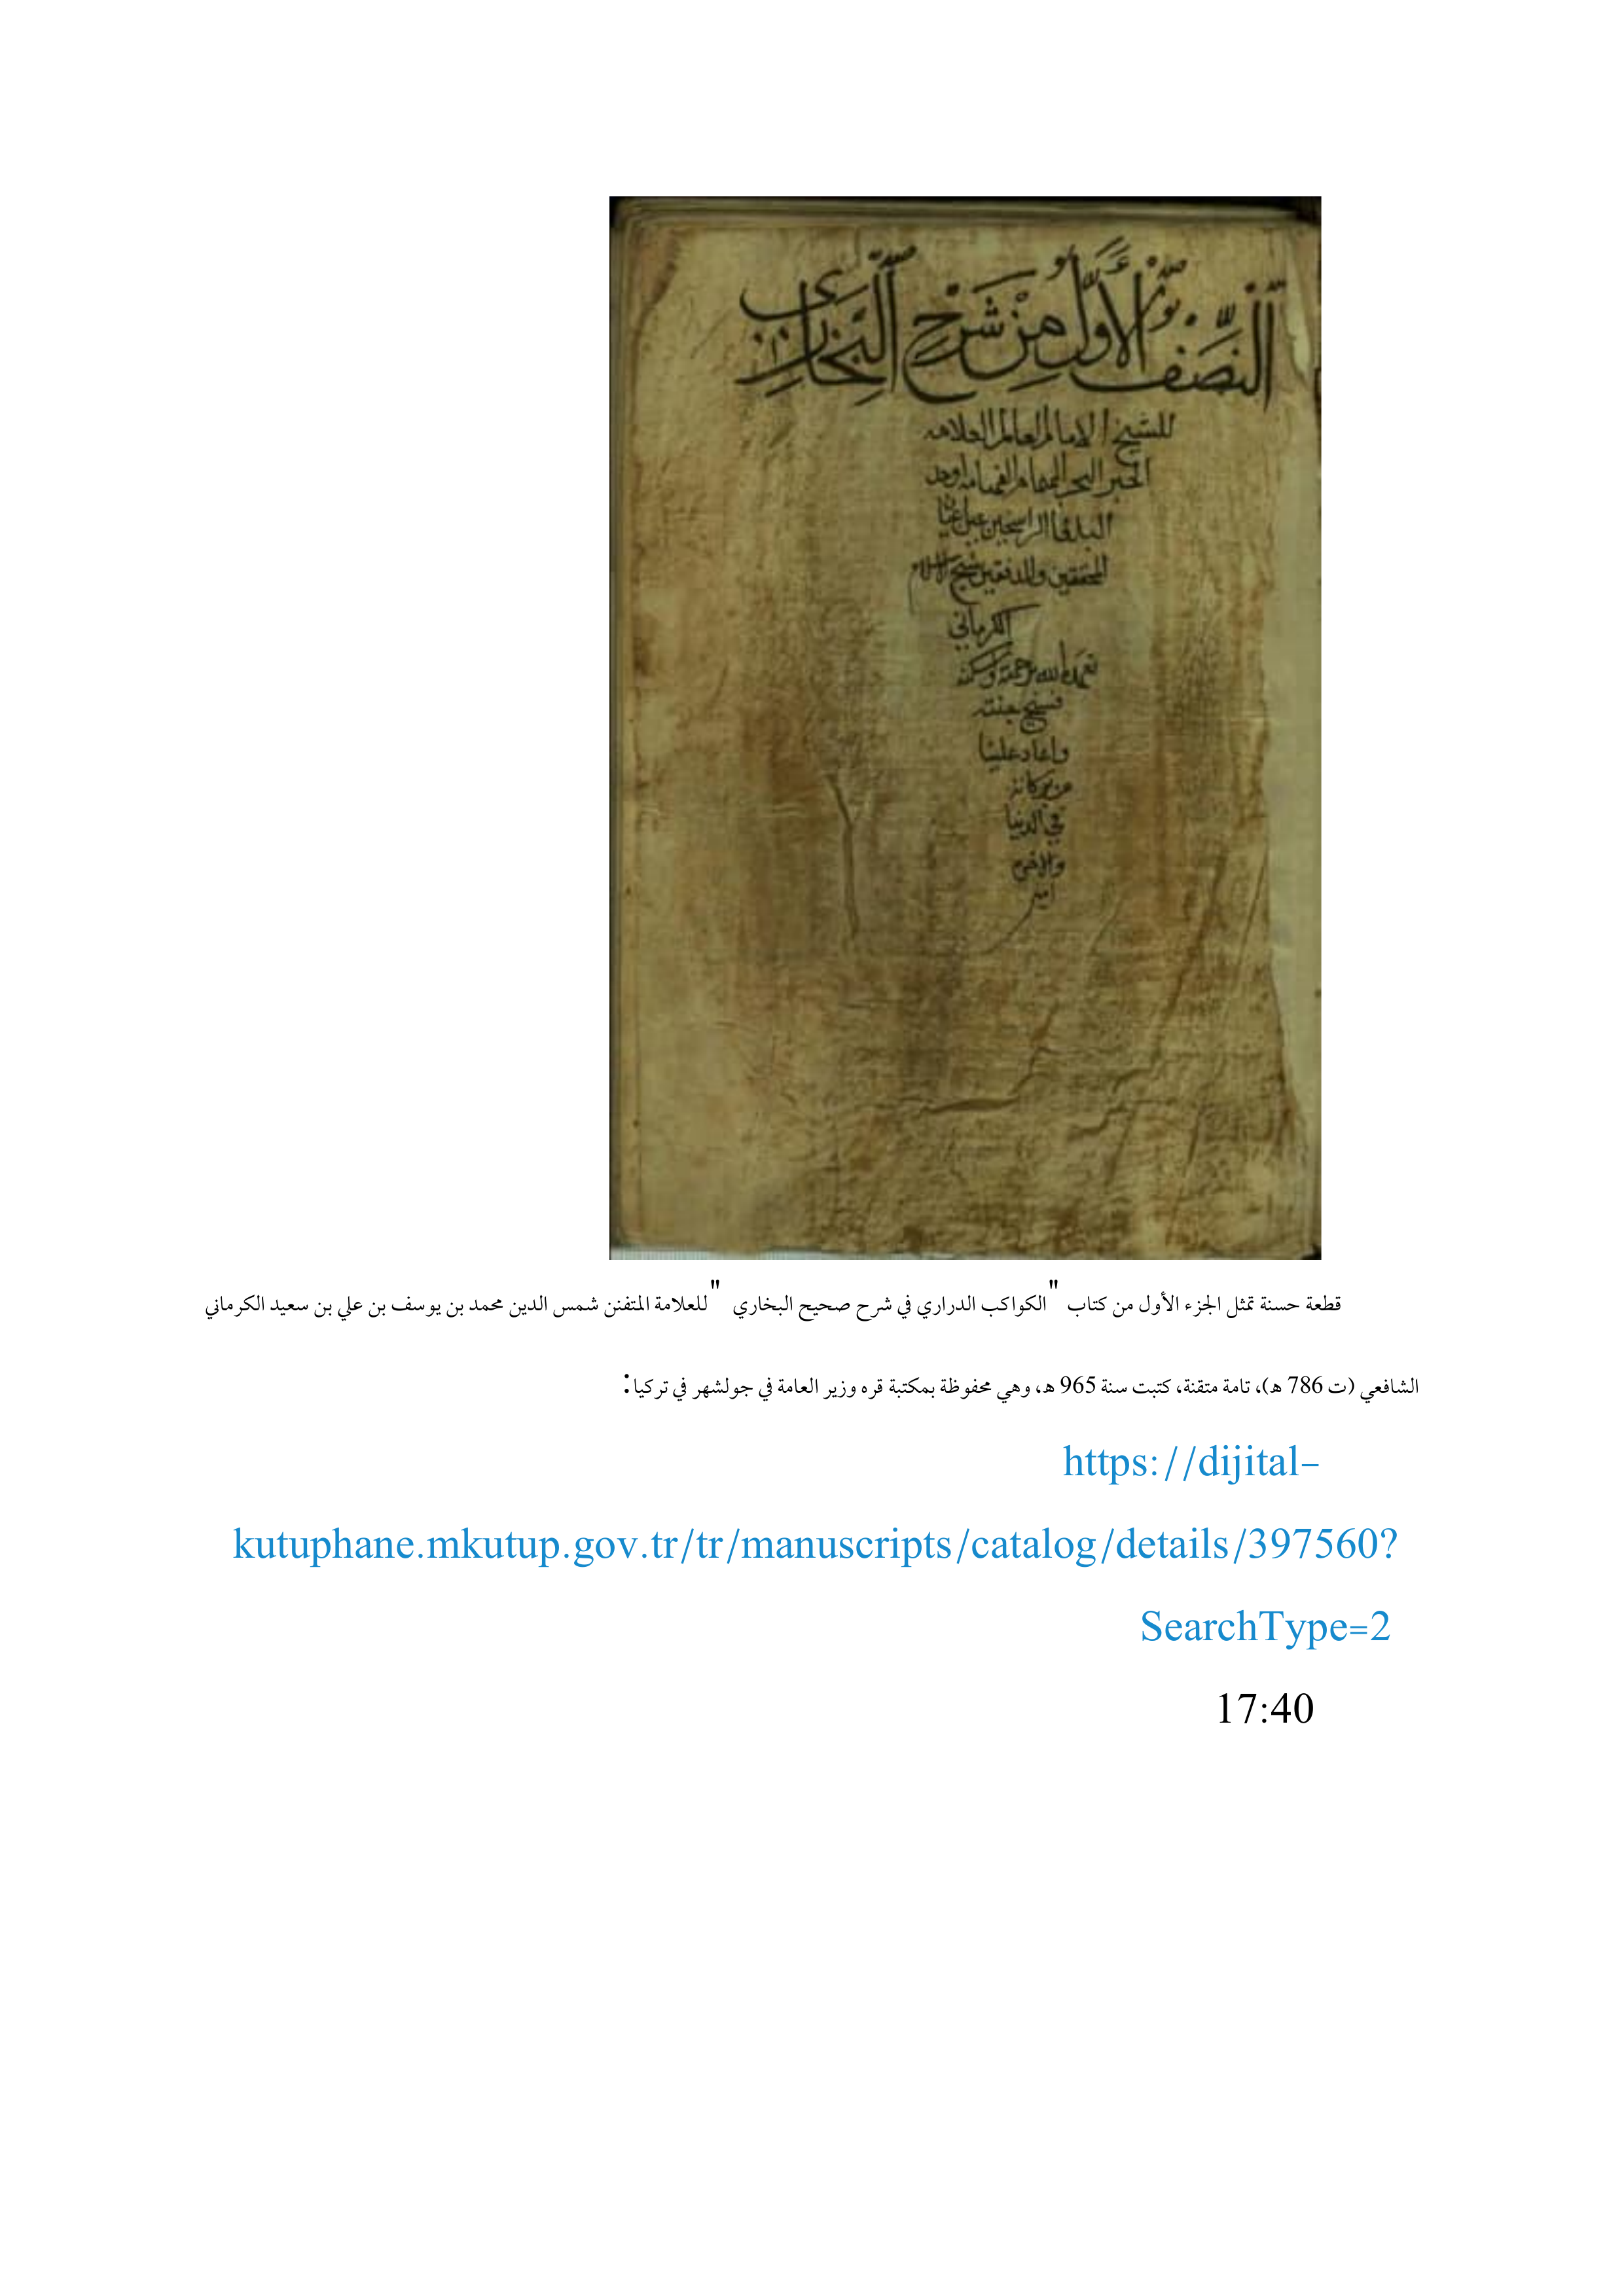 النِّصْف الأَوَّل مِنْ شَرْحِ البُخَارِي
للشيخ الامام العالم العلامه
الحبر البحر الهمام الفهامه اوحد
البلغا الراسخين عين اعيان
المحققين والمدققين شيخ الاسلام
الكرماني
تغمده الله برحمته واسكنه
فسيح جنته
واعاد علينا
من بركاته
في الدنيا
والاخره
امين
قطعة حسنة تمثل الجزء الأول من كتاب "الكواكب الدراري في شرح صحيح البخاري" للعلامة المتفنن شمس الدين محمد بن يوسف بن علي بن سعيد الكرماني
الشافعي (ت 786 هـ)، تامة متقنة، كتبت سنة 965 هـ، وهي محفوظة بمكتبة قره وزير العامة في جولشهر في تركيا:
https://dijital-
kutuphane.mkutup.gov.tr/tr/manuscripts/catalog/details/397560?
SearchType=2
17:40